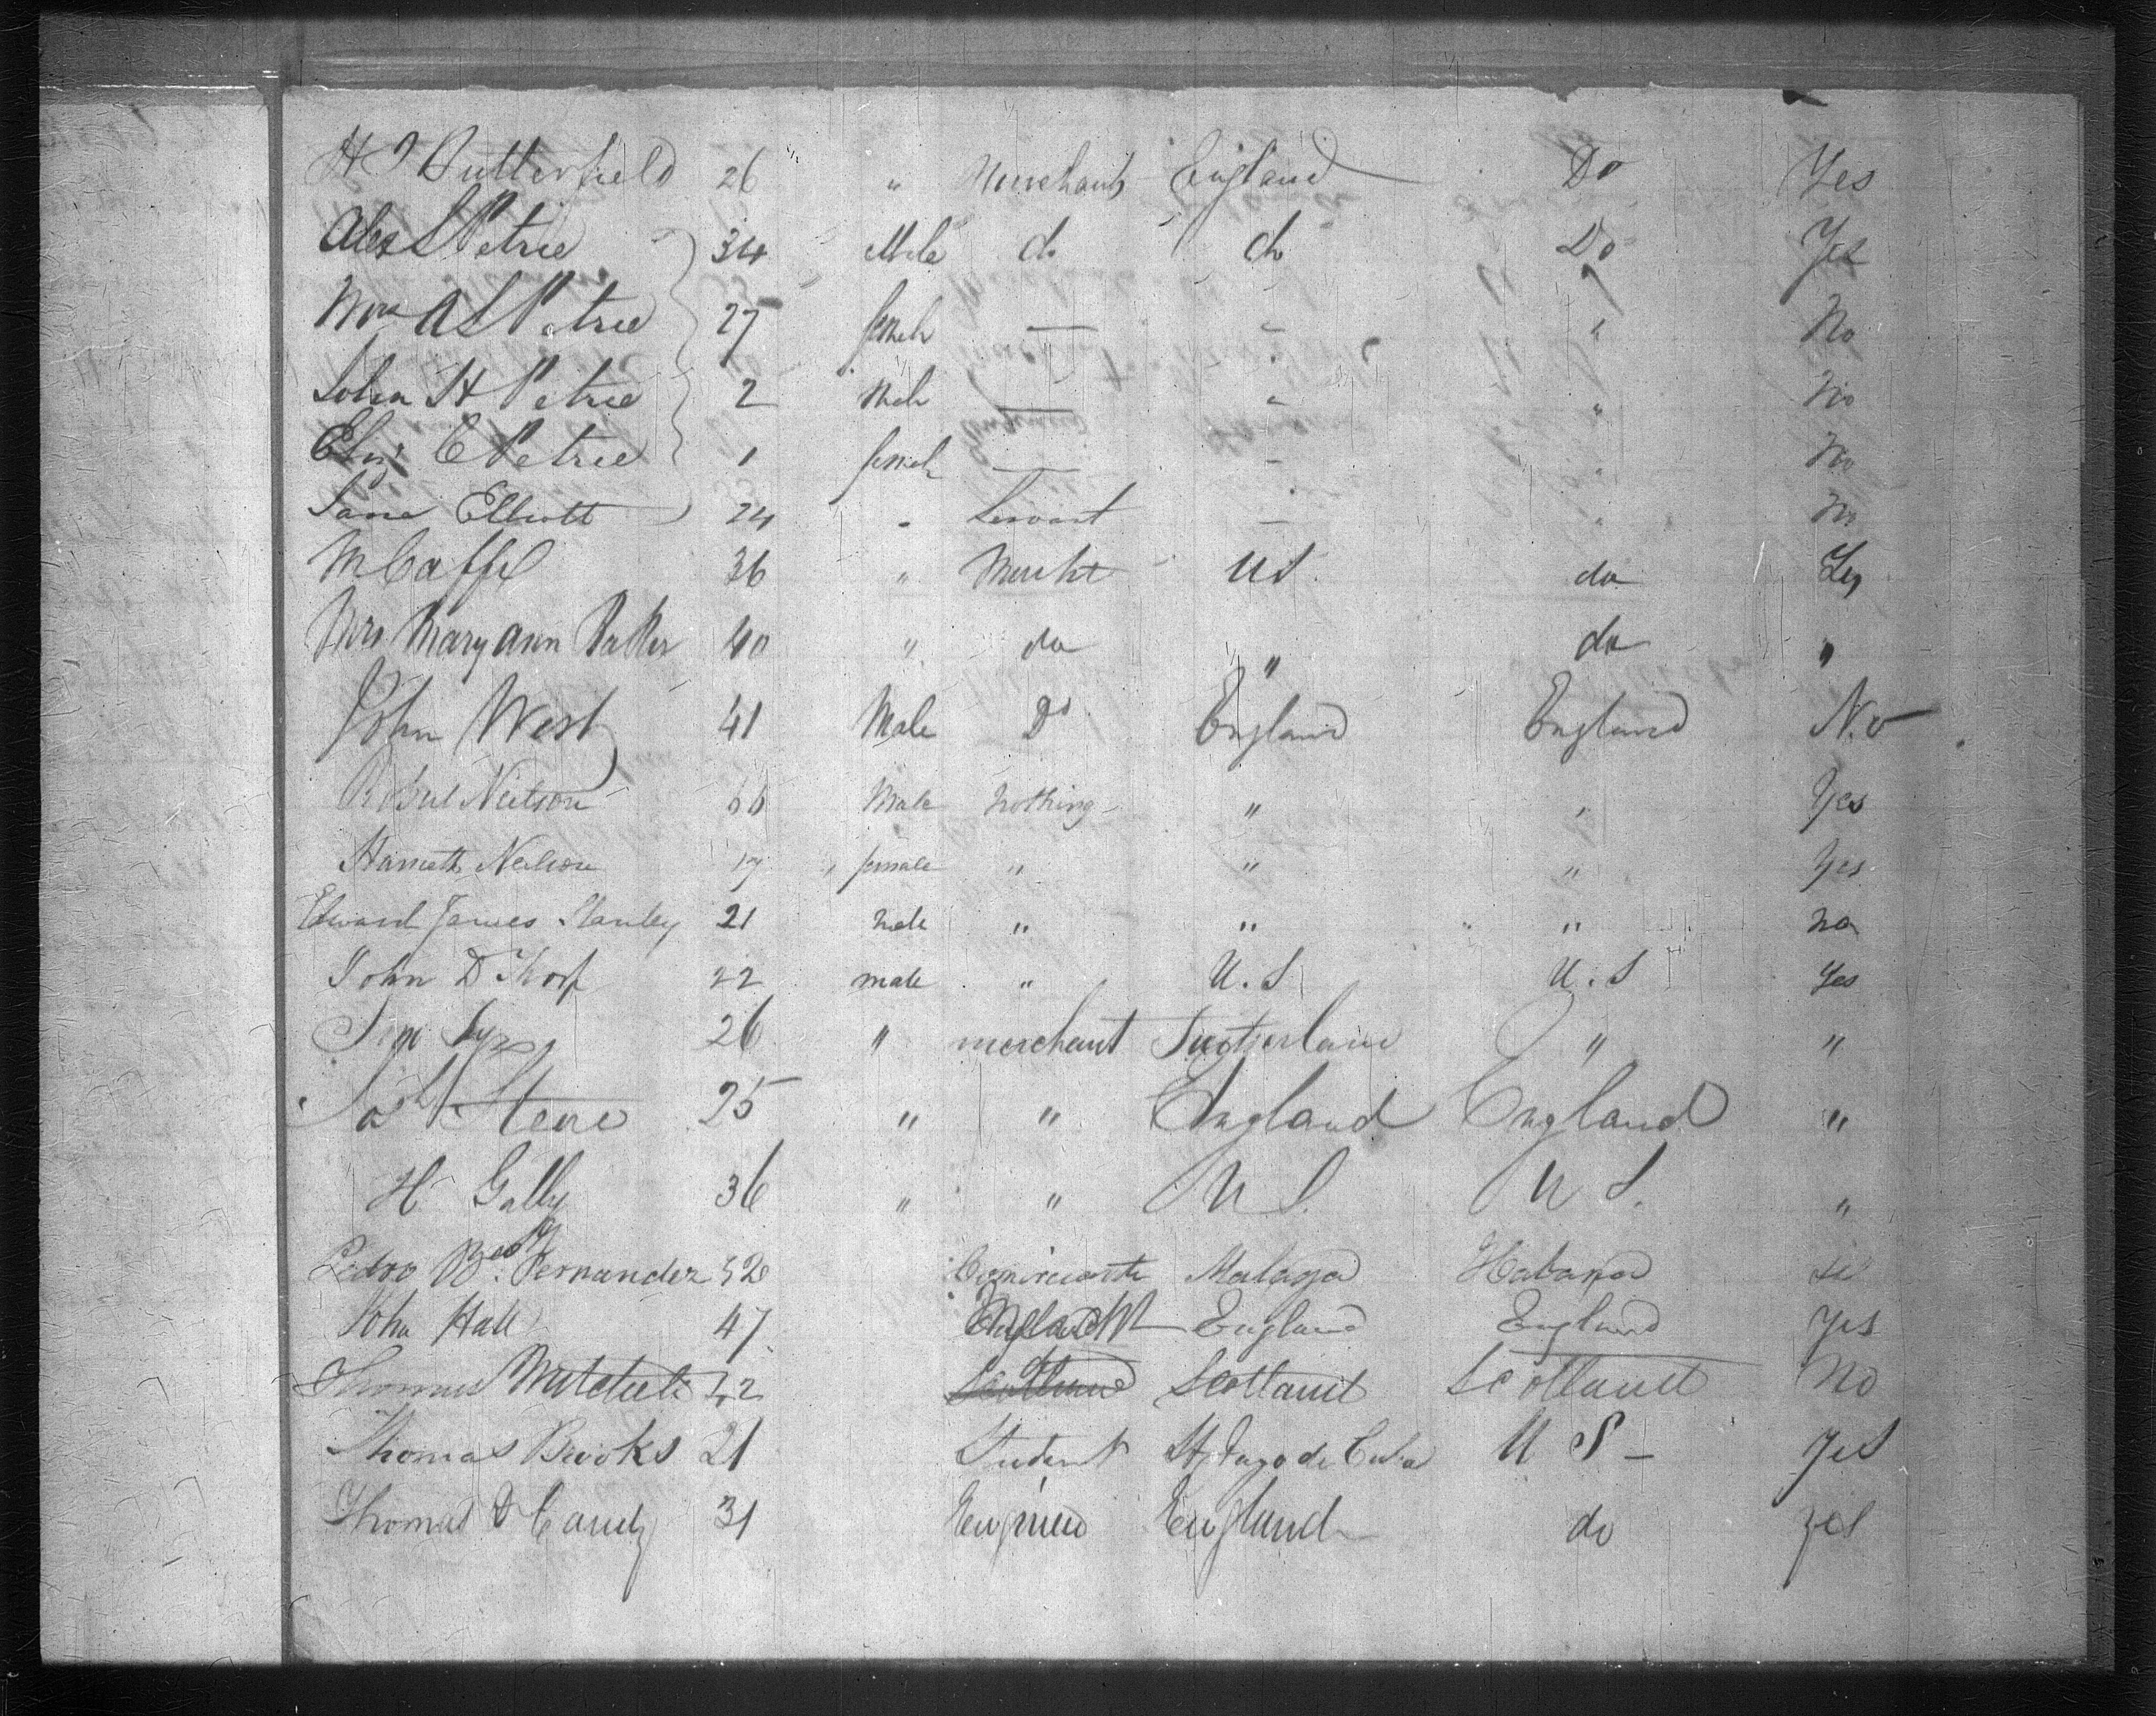 H I Butterfield 26 " Merchant England Do Yes
Alex L Petrie 34 Male do do Do Yes
Mrs A L Petrie 27 female — " " No
John H Petrie 2 Male — " " No
C Petrie 1 female — " " No
Jane Elliott 24 " Servant — " No
36 " Mercht US. do Yes
Mrs Mary Ann 40 " do " do "
John West 41 Male Do England England No
Robert Neilson Male nothing " " Yes
Neilson female " " " Yes
Edward James Stanley 21 male " " " no
John D Thorp 22 male " U.S U.S Yes
26 " merchant " "
25 " " England England "
H Gally 36 " " U S. U S. "
Pedro Fernandez Malaga Habana si
John Hall 47 England England yes
Thomas Mitchell 42 Scotland Scotland Scotland No
Thomas Brooks 21 Student St Jago de Cuba U S — yes
Thomas 31 England do yes